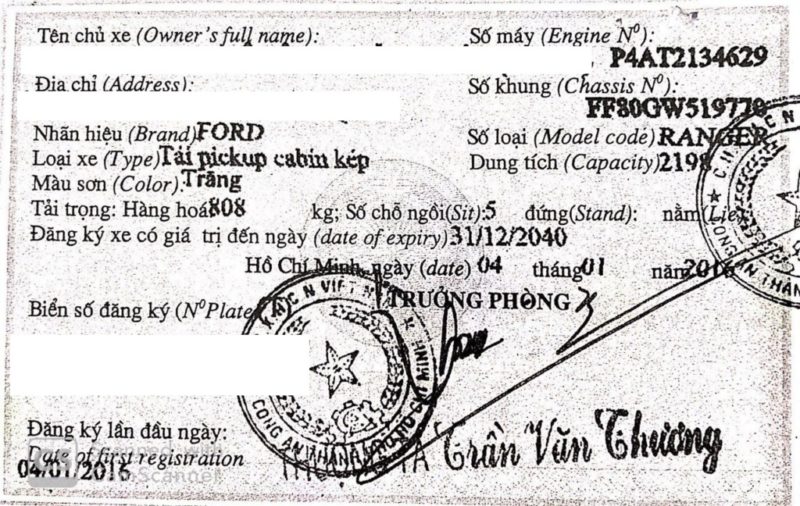 Tên chủ xe (Owner's full name):
Số máy (Engine Nº):
P4AT2134629
Địa chỉ (Address):
Số khung (Chassis Nº):
FF80GW519778
Nhãn hiệu (Brand) FORD
Số loại (Model code) RANGER
Loại xe (Type) Tải pickup cabin kép
Dung tích (Capacity) 2198
Màu sơn (Color): Trắng
Tải trọng: Hàng hoá 808 kg; Số chỗ ngồi(Sit): 5 đứng(Stand): nằm(Lie)
Đăng ký xe có giá trị đến ngày (date of expiry) 31/12/2040
Hồ Chí Minh, ngày (date) 04 tháng 01 năm 2016
TRƯỞNG PHÒNG
Biển số đăng ký (NºPlate)
Đăng ký lần đầu ngày:
Date of first registration
04/01/2016
Trần Văn Thương